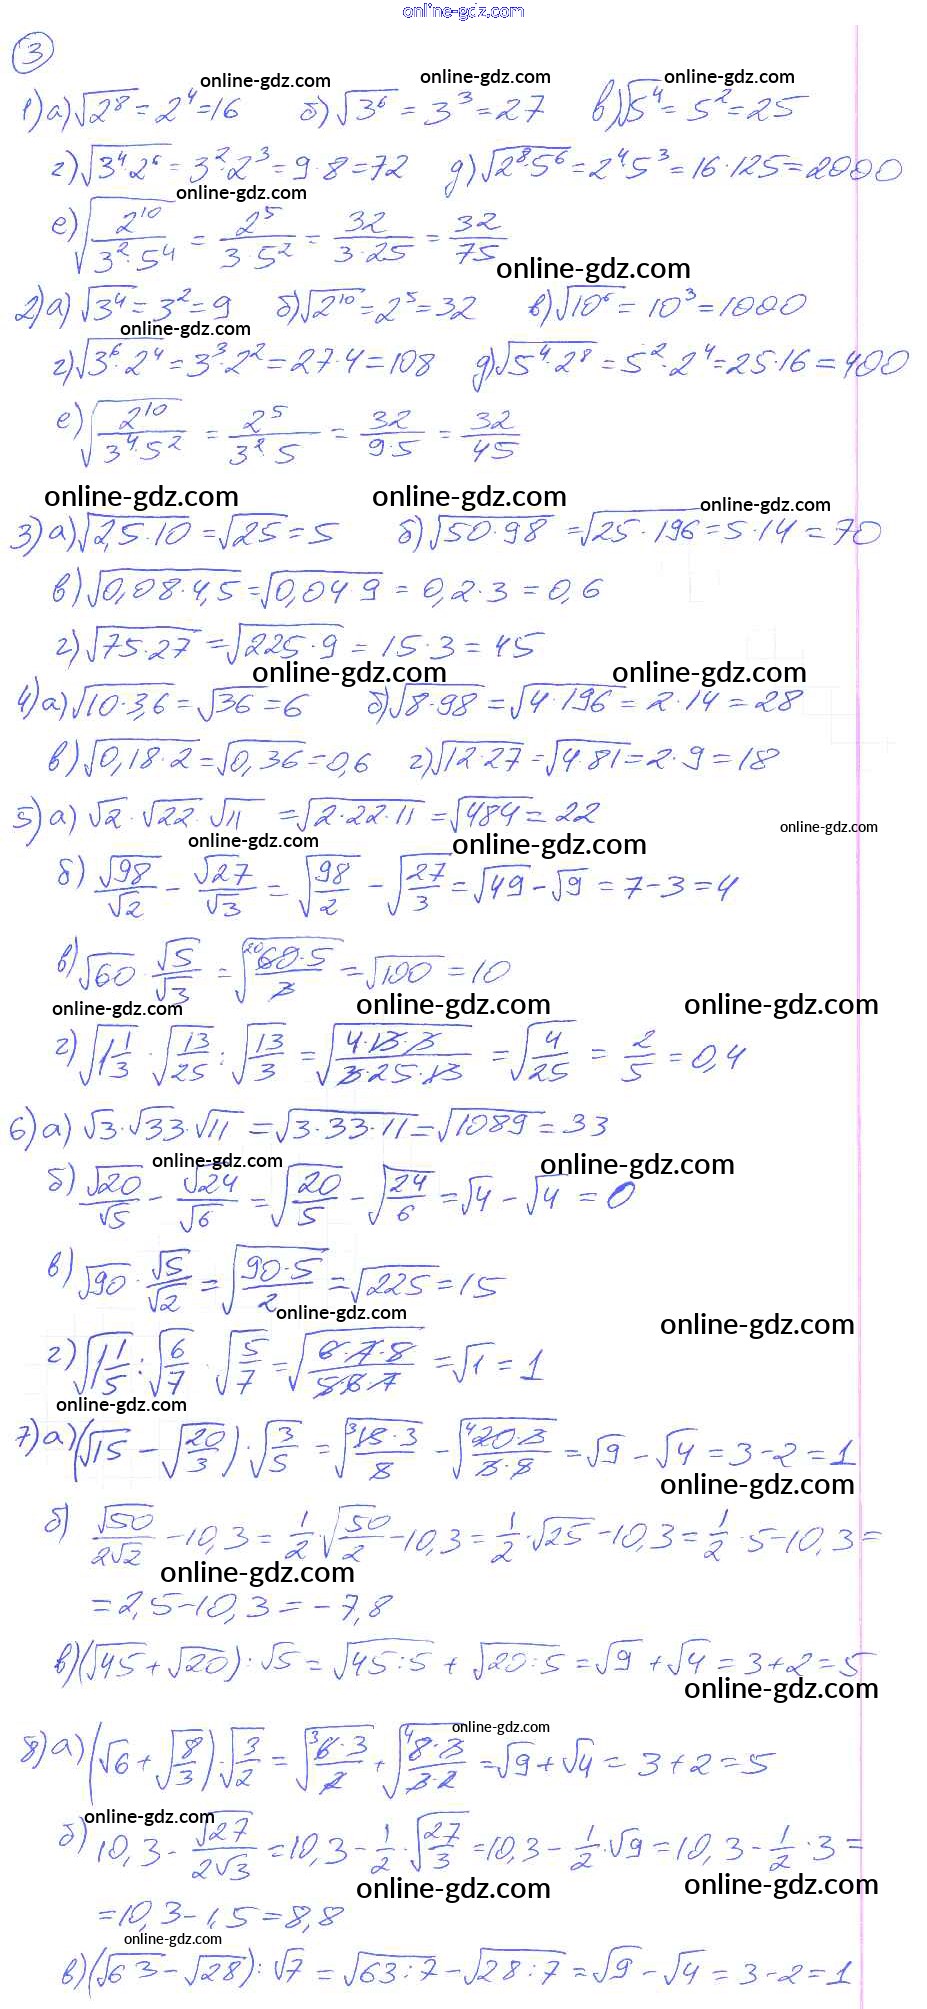 online-gdz.com
3
online-gdz.com online-gdz.com online-gdz.com
1) а) √2⁸ = 2⁴ = 16 б) √3⁶ = 3³ = 27 в) √5⁴ = 5² = 25
г) √3⁴·2⁶ = 3²·2³ = 9·8 = 72 д) √2⁸·5⁶ = 2⁴·5³ = 16·125 = 2000
online-gdz.com
е) √(2¹⁰/(3²·5⁴)) = 2⁵/(3·5²) = 32/(3·25) = 32/75
online-gdz.com
2) а) √3⁴ = 3² = 9 б) √2¹⁰ = 2⁵ = 32 в) √10⁶ = 10³ = 1000
online-gdz.com
г) √3⁶·2⁴ = 3³·2² = 27·4 = 108 д) √5⁴·2⁸ = 5²·2⁴ = 25·16 = 400
е) √(2¹⁰/(3⁴·5²)) = 2⁵/(3²·5) = 32/(9·5) = 32/45
online-gdz.com online-gdz.com online-gdz.com
3) а) √(2,5·10) = √25 = 5 б) √(50·98) = √(25·196) = 5·14 = 70
в) √(0,08·4,5) = √(0,04·9) = 0,2·3 = 0,6
г) √(75·27) = √(225·9) = 15·3 = 45
online-gdz.com online-gdz.com
4) а) √(10·3,6) = √36 = 6 б) √(8·98) = √(4·196) = 2·14 = 28
в) √(0,18·2) = √(0,36) = 0,6 г) √(12·27) = √(4·81) = 2·9 = 18
5) а) √2·√22·√11 = √(2·22·11) = √484 = 22
online-gdz.com online-gdz.com online-gdz.com
б) √98/√2 − √27/√3 = √(98/2) − √(27/3) = √49 − √9 = 7 − 3 = 4
в) √60·√5/√3 = √(²⁰60·5/3) = √100 = 10
online-gdz.com online-gdz.com online-gdz.com
г) √(1 1/3)·√(13/25) : √(13/3) = √(4·13·3/(3·25·13)) = √(4/25) = 2/5 = 0,4
6) а) √3·√33·√11 = √(3·33·11) = √1089 = 33
online-gdz.com online-gdz.com
б) √20/√5 − √24/√6 = √(20/5) − √(24/6) = √4 − √4 = 0
в) √90·√5/√2 = √(90·5/2) = √225 = 15
online-gdz.com online-gdz.com
г) √(1 1/5) : √(6/7)·√(5/7) = √(6·7·5/(5·6·7)) = √1 = 1
online-gdz.com
7) а) (√15 − √(20/3))·√(3/5) = √(³15·3/5) − √(⁴20·3/(3·5)) = √9 − √4 = 3 − 2 = 1
online-gdz.com
б) √50/(2√2) − 10,3 = 1/2·√(50/2) − 10,3 = 1/2·√25 − 10,3 = 1/2·5 − 10,3 =
online-gdz.com
= 2,5 − 10,3 = −7,8
в) (√45 + √20) : √5 = √(45:5) + √(20:5) = √9 + √4 = 3 + 2 = 5
online-gdz.com
online-gdz.com
8) а) (√6 + √(8/3))·√(3/2) = √(³6·3/2) + √(⁴8·3/(3·2)) = √9 + √4 = 3 + 2 = 5
online-gdz.com
б) 10,3 − √27/(2√3) = 10,3 − 1/2·√(27/3) = 10,3 − 1/2·√9 = 10,3 − 1/2·3 =
online-gdz.com online-gdz.com
= 10,3 − 1,5 = 8,8
online-gdz.com
в) (√63 − √28) : √7 = √(63:7) − √(28:7) = √9 − √4 = 3 − 2 = 1